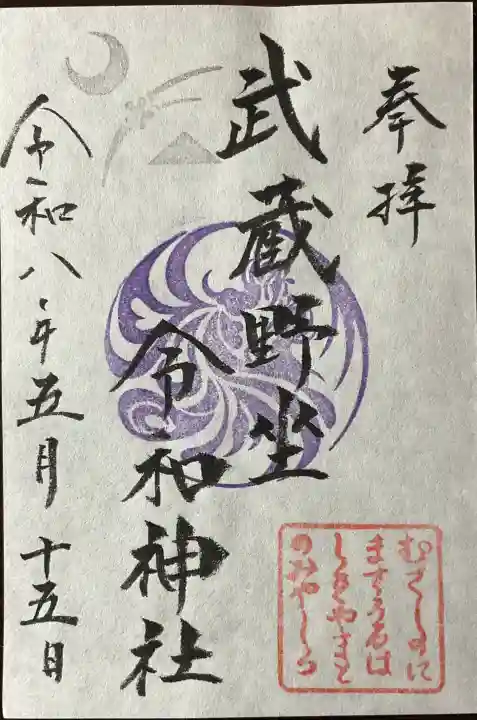 奉拝
武蔵野坐
令和神社
令和八年五月十五日
むさしのに
ますうるは
しきやまと
のみやしろ